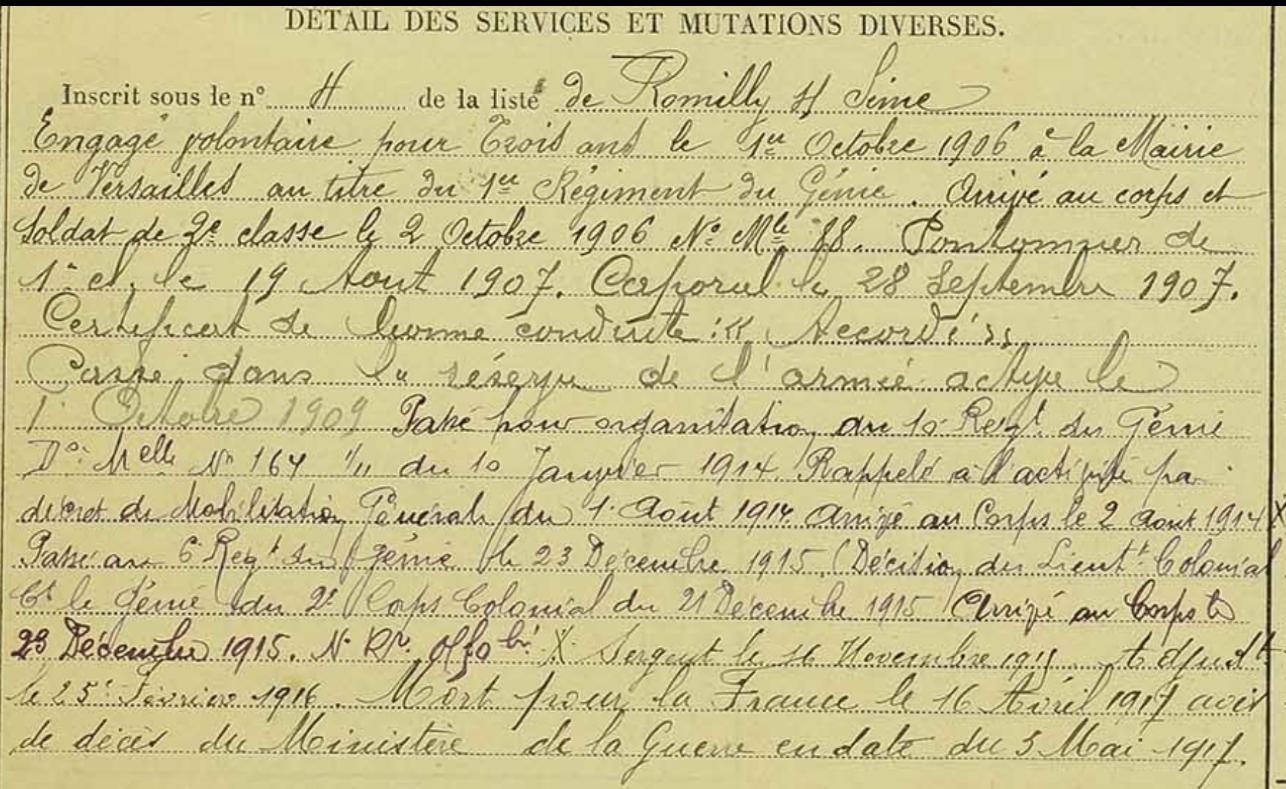 DÉTAIL DES SERVICES ET MUTATIONS DIVERSES.
Inscrit sous le n° de la liste de Romilly s/ Seine
Engagé volontaire pour Trois ans le 1er Octobre 1906 à la Mairie
de Versailles au titre du 1er Régiment du Génie. Arrivé au corps et
soldat de 2e classe le 2 Octobre 1906 N° Mle 88. Pontonnier de
1e cl. le 19 Aout 1907. Caporal le 28 Septembre 1907.
Certificat de bonne conduite : « Accordé »
Passé dans la réserve de l'armée active le
1 Octobre 1909 Passé pour organisation au 10 Regt du Génie
Don Melle N° 164 1/11 du 10 Janvier 1914. Rappelé à l'activité par
décret de Mobilisation Générale du 1 Août 1914. Arrivé au Corps le 2 Août 1914 X
Passé au 6 Regt du génie le 23 Décembre 1915. (Décision du Lieutt Colonial
Ct le Génie du 2e Corps Colonial du 21 Décembre 1915) Arrivé au Corps le
23 Décembre 1915. N° Rre X Sergent le 16 Novembre 1915 Adjudt
le 25 Février 1916. Mort pour la France le 16 Avril 1917 avis
de décès du Ministère de la Guerre en date du 5 Mai 1917.